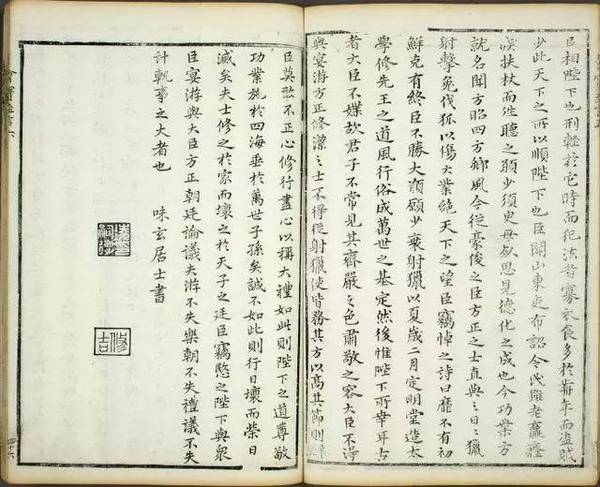 臣相陛下也刑輕於它時而犯法者寡衣食多於前年而盜賊
少此天下之所以順陛下也臣聞山東吏布詔令民雖老羸癃
疾扶杖而往聽之願少須臾毋死思見德化之成也今功業方
就名聞方昭四方鄉風今從豪俊之臣方正之士直與之日日獵
射擊兔伐狐以傷大業絕天下之望臣竊悼之詩曰靡不有初
鮮克有不勝大願願少衰射獵以夏歲二月定明堂造太
學修先王之道風行俗成萬世之基定然後惟陛下所幸耳古
者大臣不媟故君子不常見其齊嚴之色肅敬之容大臣不得
與宴游方正修潔之士不得從射獵使皆務其方以高其節則群
臣莫敢不正心修行盡心以稱大禮如此則陛下之道尊敬
功業施於四海垂於萬世子孫矣誠不如此則行日壞而榮日
滅矣夫士修之於家而壞之於天子之廷臣竊愍之陛下與眾
臣宴游與大臣方正朝廷論議夫游不失樂朝不失禮議不失
計軌事之大者也 味玄居士書